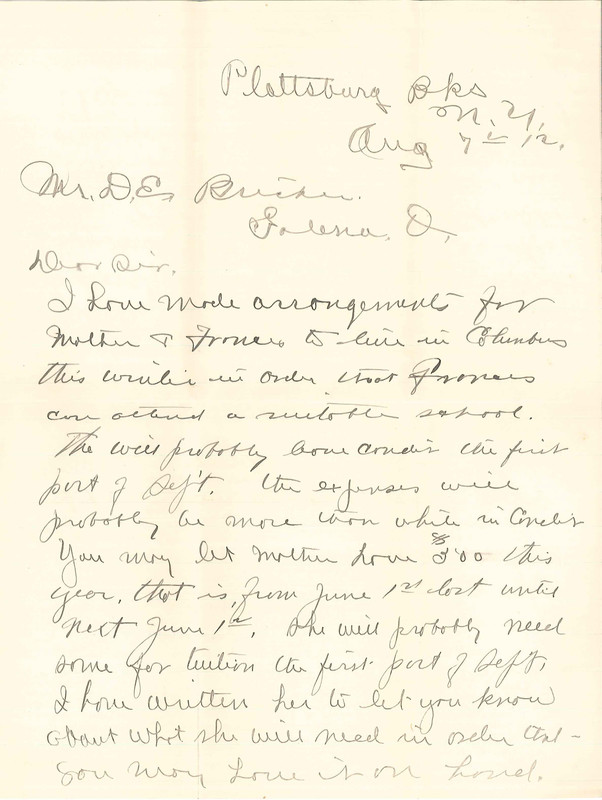 Plattsburg Bks
N. Y.
Aug 7th 12.
Mr. D. E. Bricker.
Galena, O.
Dear Sir.
I have made arrangements for
Mother & Frances to live in Columbus
this winter in order that Frances
can attend a suitable school.
The will probably leave Condit the first
part of Sept. The expenses will
probably be more than while in Condit
You may let Mother have $300 this
year, that is, from June 1st last until
next June 1st. She will probably need
some for tuition the first part of Sept.
I have written her to let you know
about what she will need in order that
you may have it on hand.